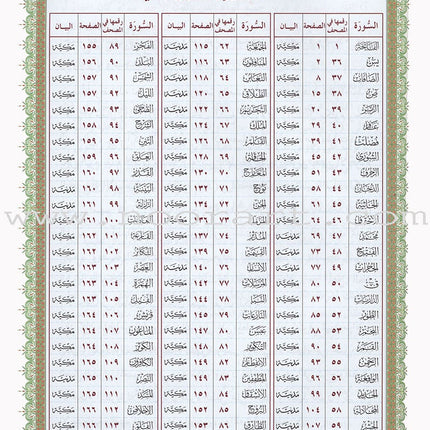 السورة رقمها في المصحف الصفحة البيان السورة رقمها في المصحف الصفحة البيان السورة رقمها في المصحف الصفحة البيان
الفاتحة ١ ١ مكية الجمعة ٦٢ ١١٥ مدنية الفجر ٨٩ ١٥٥ مكية
يس ٣٦ ٢ مكية المنافقون ٦٣ ١١٦ مدنية البلد ٩٠ ١٥٦ مكية
الصافات ٣٧ ٨ مكية التغابن ٦٤ ١١٨ مدنية الشمس ٩١ ١٥٧ مكية
ص ٣٨ ١٥ مكية الطلاق ٦٥ ١٢٠ مدنية الليل ٩٢ ١٥٧ مكية
الزمر ٣٩ ٢٠ مكية التحريم ٦٦ ١٢٢ مدنية الضحى ٩٣ ١٥٨ مكية
غافر ٤٠ ٢٩ مكية الملك ٦٧ ١٢٤ مكية الشرح ٩٤ ١٥٨ مكية
فصلت ٤١ ٣٩ مكية القلم ٦٨ مكية التين ٩٥ ١٥٩ مكية
الشورى ٤٢ ٤٥ مكية الحاقة ٦٩ ١٢٨ مكية العلق ٩٦ ١٥٩ مكية
الزخرف ٤٣ مكية المعارج ٧٠ ١٣٠ مكية القدر ٩٧ ١٦٠ مكية
الدخان ٤٤ ٥٨ مكية نوح ٧١ ١٣٢ مكية البينة ٩٨ ١٦٠ مدنية
الجاثية ٤٥ مكية الجن ٧٢ ١٣٤ مكية الزلزلة ٩٩ ١٦١ مدنية
الأحقاف ٤٦ مكية المزمل ٧٣ مكية العاديات ١٠٠ مكية
محمد ٤٧ ٦٩ مدنية المدثر ٧٤ ١٣٧ مكية القارعة ١٠١ ١٦٢ مكية
الفتح ٤٨ ٧٣ مدنية القيامة ٧٥ ١٣٩ مكية التكاثر ١٠٢ ١٦٢ مكية
الحجرات ٤٩ ٧٧ مدنية الإنسان ٧٦ ١٤٠ مدنية العصر ١٠٣ ١٦٣ مكية
ق ٥٠ ٨٠ مكية المرسلات ٧٧ ١٤٢ مكية الهمزة ١٠٤ ١٦٣ مكية
الذاريات ٥١ ٨٢ مكية النبأ ٧٨ ١٤٤ مكية الفيل ١٠٥ ١٦٣ مكية
الطور ٥٢ ٨٥ مكية النازعات ٧٩ ١٤٥ مكية قريش ١٠٦ ١٦٤ مكية
النجم ٥٣ ٨٨ مكية عبس ٨٠ ١٤٧ مكية الماعون ١٠٧ ١٦٤ مكية
القمر ٥٤ ٩٠ مكية التكوير ٨١ ١٤٨ مكية الكوثر ١٠٨ ١٦٤ مكية
الرحمن ٥٥ ٩٣ مدنية الانفطار ٨٢ ١٤٩ مكية الكافرون ١٠٩ ١٦٥ مكية
الواقعة ٥٦ ٩٦ مكية المطففين ٨٣ ١٤٩ مكية النصر ١١٠ ١٦٥ مدنية
الحديد ٥٧ ٩٩ مدنية الانشقاق ٨٤ ١٥١ مكية المسد ١١١ ١٦٥ مكية
المجادلة ٥٨ ١٠٤ مدنية البروج ٨٥ ١٥٢ مكية الإخلاص ١١٢ ١٦٦ مكية
الحشر ٥٩ ١٠٧ مدنية الطارق ٨٦ ١٥٣ مكية الفلق ١١٣ ١٦٦ مكية